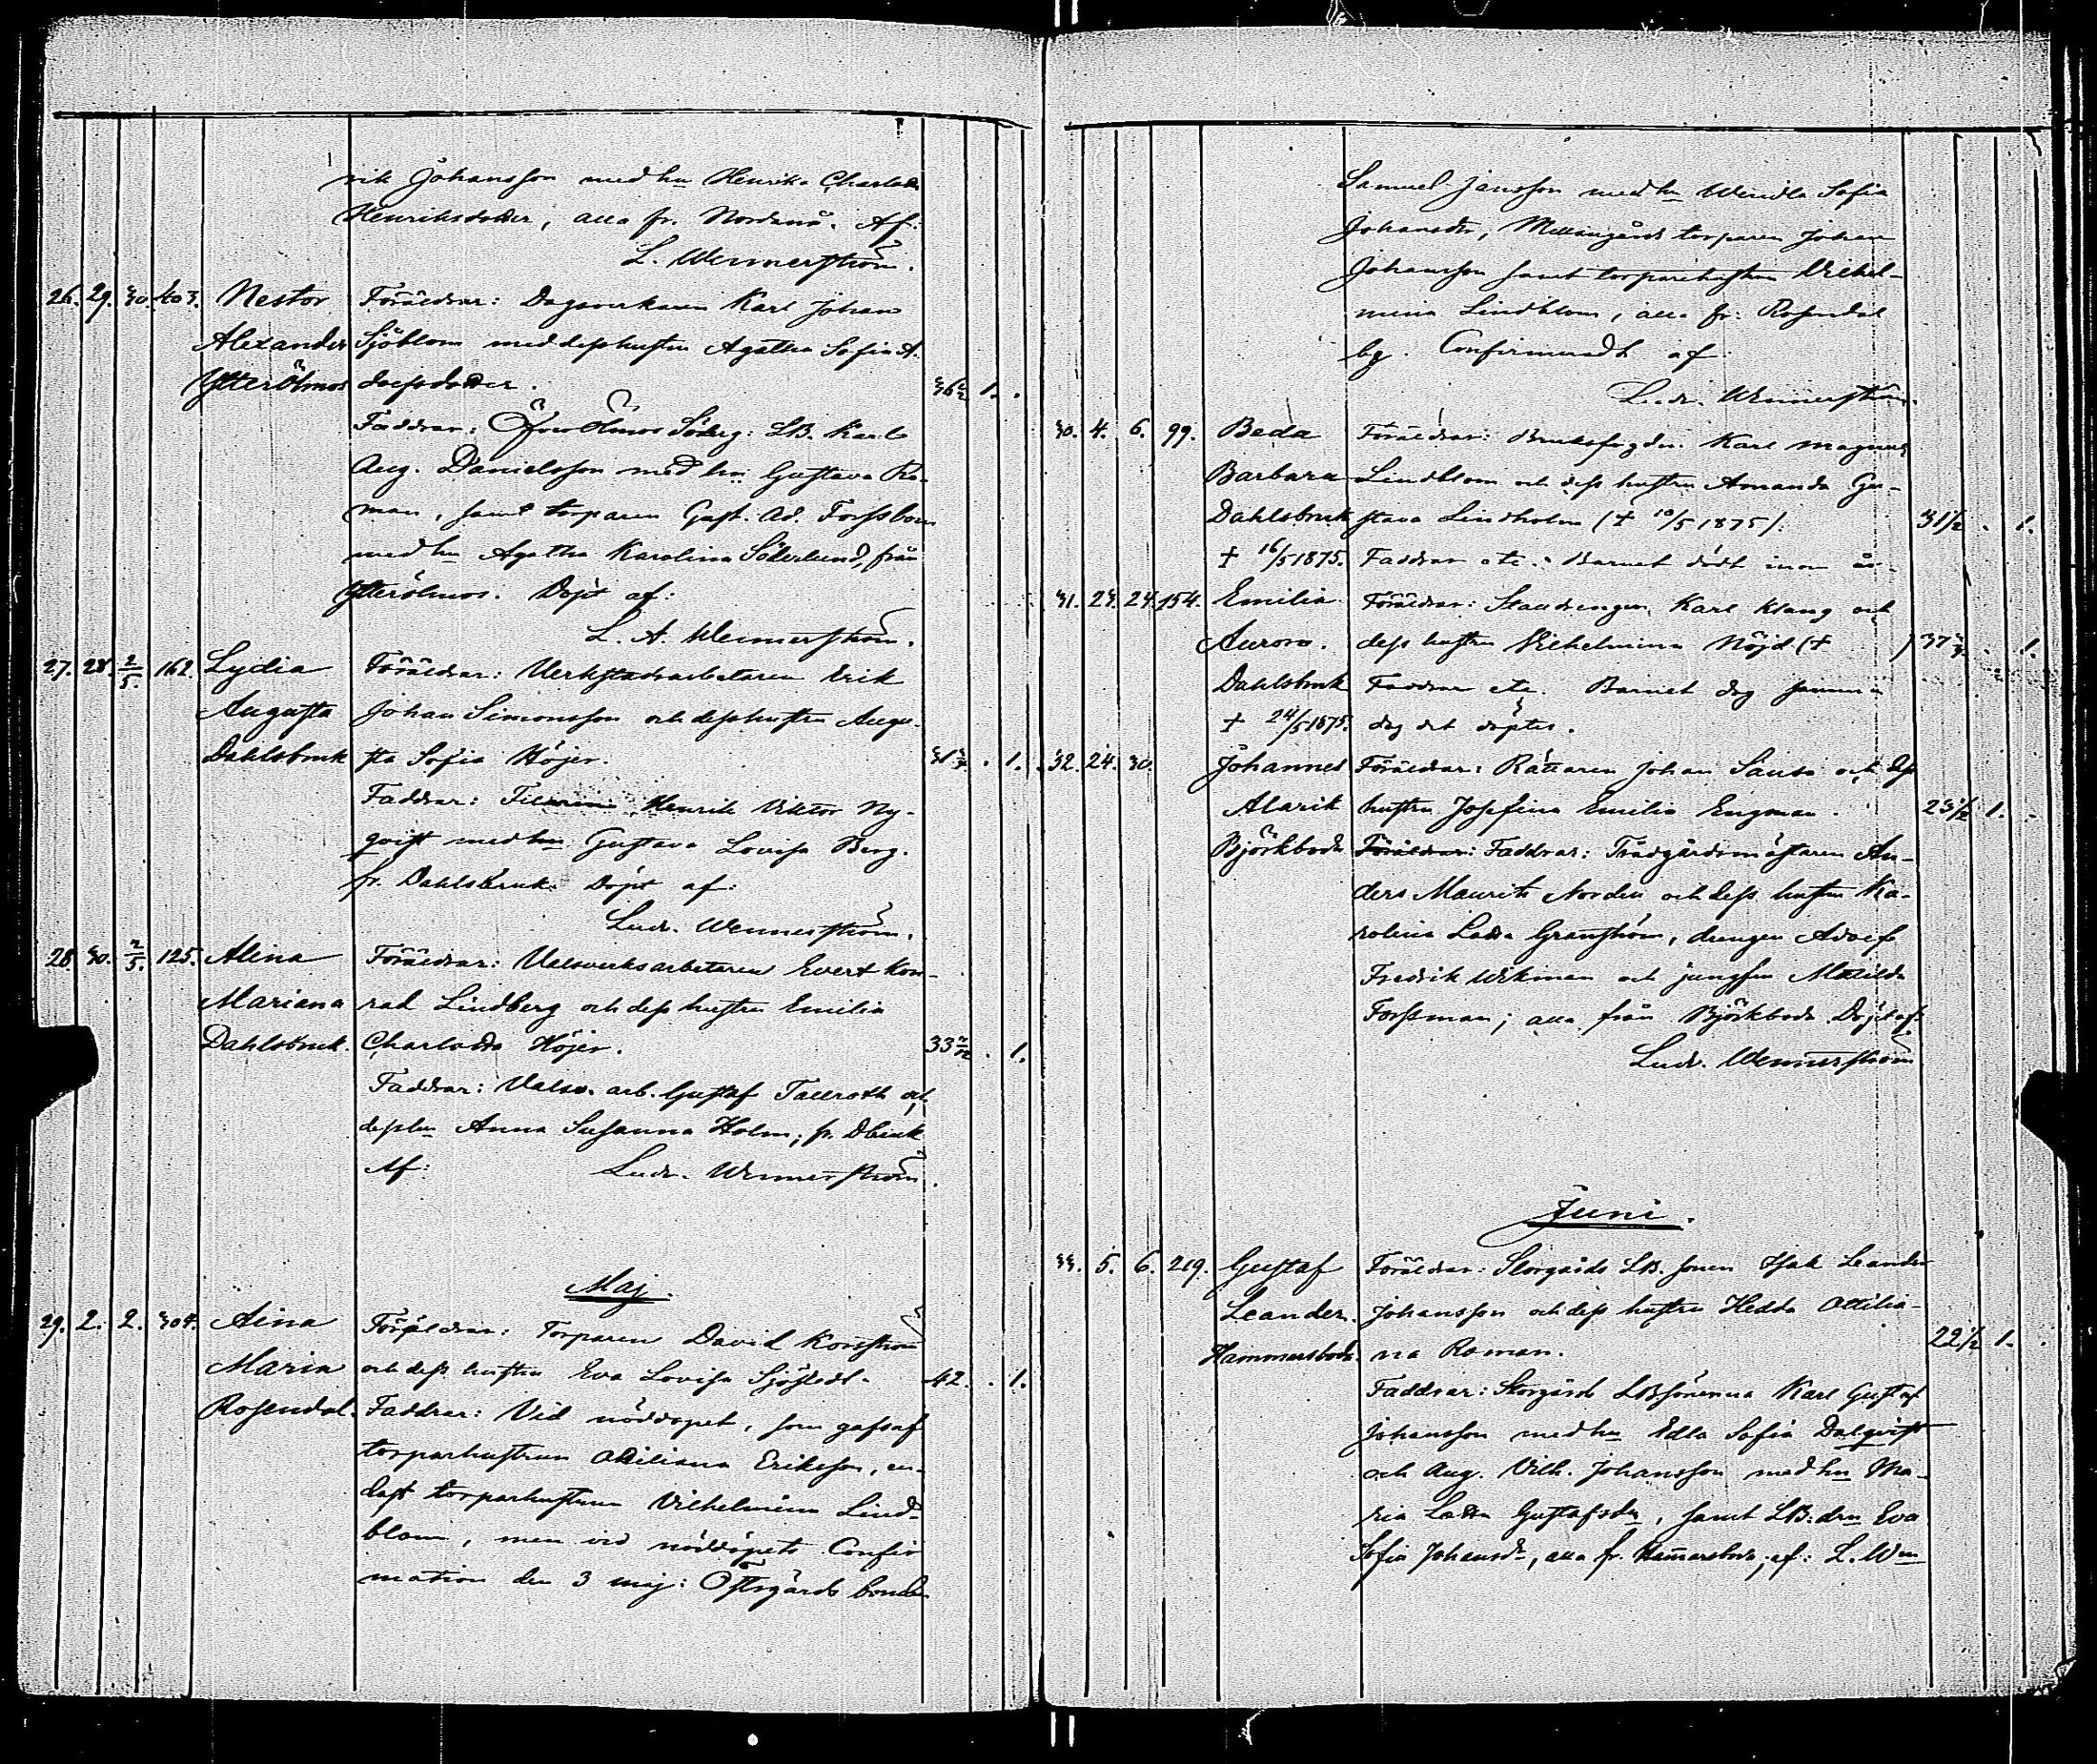 rik Johansson med hu Henrika Charlotta
Henriksdotter, alla fr. Nordanö. Af:
L. Wennerström.
26. 29. 30. 403. Nestor Föräldrar: Dagsverkaren Karl Johan
Alexander Sjöblom med dess hustru Agatha Sofia A-
Ytterölmos dolfsdotter. 36 1/2 1.
Faddrar: Öfverölmos Söderg: LB. Karl
Aug. Danielsson med hu Gustava Ro-
man, samt torparen Gust. Ad. Forssbom
med hu Agatha Karolina Söderlund, från
Ytterölmos. Döpt af:
L. A. Wennerström.
27. 28. 2/5. 162. Lydia Föräldrar: Verkstadsarbetaren Erik
Augusta Johan Simonsson och dess hustru Augu-
Dahlsbruk sta Sofia Höjer. . 1.
Faddrar: Henrik Viktor Ny-
qvist med hu Gustava Lovisa Berg.
fr. Dahlsbruk. Döpt af:
Ludv. Wennerström.
28. 30. 2/5. 125. Alina Föräldrar: Valsverksarbetaren Evert Kon-
Mariana rad Lindberg och dess hustru Emilia
Dahlsbruk. Charlotta Höjer. 33 . 1.
Faddrar: Valsv. arb. Gustaf Tallroth och
dess hu Anna Susanna Holm; fr. Dbruk
Af: Ludv. Wennerström.
Maj.
29. 2. 2. 304. Aina Föräldrar: Torparen David Korsström
Maria och dess hustru Eva Lovisa Sjöstedt. 42. . 1.
Rosendal. Faddrar: Vid nöddopet, som gafs af
torparhustrun Ottiliana Eriksson, en-
dast torparhustrun Vilhelmina Lind-
blom, men vid nöddopets Confir
mation den 3 maj: Östergårds bonden
Samuel Jansson med hu Wendla Sofia
Johansdr, Mellangårds torparen Johan
Johansson samt torparehustrun Vilhel-
mina Lindblom, alla fr: Rosendal
by. Confirmeradt af:
Ludv. Wennerström.
30. 4. 6. 99. Beda Föräldrar: Bruksfogden Karl Magnus
Barbara Lindblom och dess hustru Amanda Gu-
Dahlsbruk stava Lindholm († 10/5 1875). 31 1/2 . 1.
† 16/5 1875. Faddrar etc. Barnet dödt inom år.
31. 23. 24. 154. Emilia Föräldrar: Stalldrengen Karl Klang och
Aurora. dess hustru Vilhelmina Nöjd († ) 37 . 1.
Dahlsbruk Faddrar etc. Barnet dog samma
† 24/5 1875. dag det döptes.
32. 24. 30. Johannes Föräldrar: Rättaren Johan och dess
Alarik hustru Josefina Emilia Engman. 23 1/2 1.
Björkboda Föräldrar: Faddrar: Trädgårdsmästaren An-
ders Maurits Norden och dess hustru Ka-
rolina Lotta Granström, drengen Adolf
Fredrik Wikman och jungfru Matilda
Forssman; alla från Björkboda. Döpt af:
Ludv. Wennerström
Juni.
33. 5. 6. 219. Gustaf Föräldrar: Storgårds LB. sonen Isak Leander
Leander. Johansson och dess hustru Hedda Ottilia-
Hammarsboda. na Roman. 22 1/2 1.
Faddrar: Storgårds LBsönerna Karl Gustaf
Johansson med hu Edla Sofia Dalqvist
och Aug. Vilh. Johansson med hu Ma-
ria Lotta Gustafsdr, samt LB: drn Eva
Sofia Johansdr, alla fr. Hammarsboda; af: L. Wm